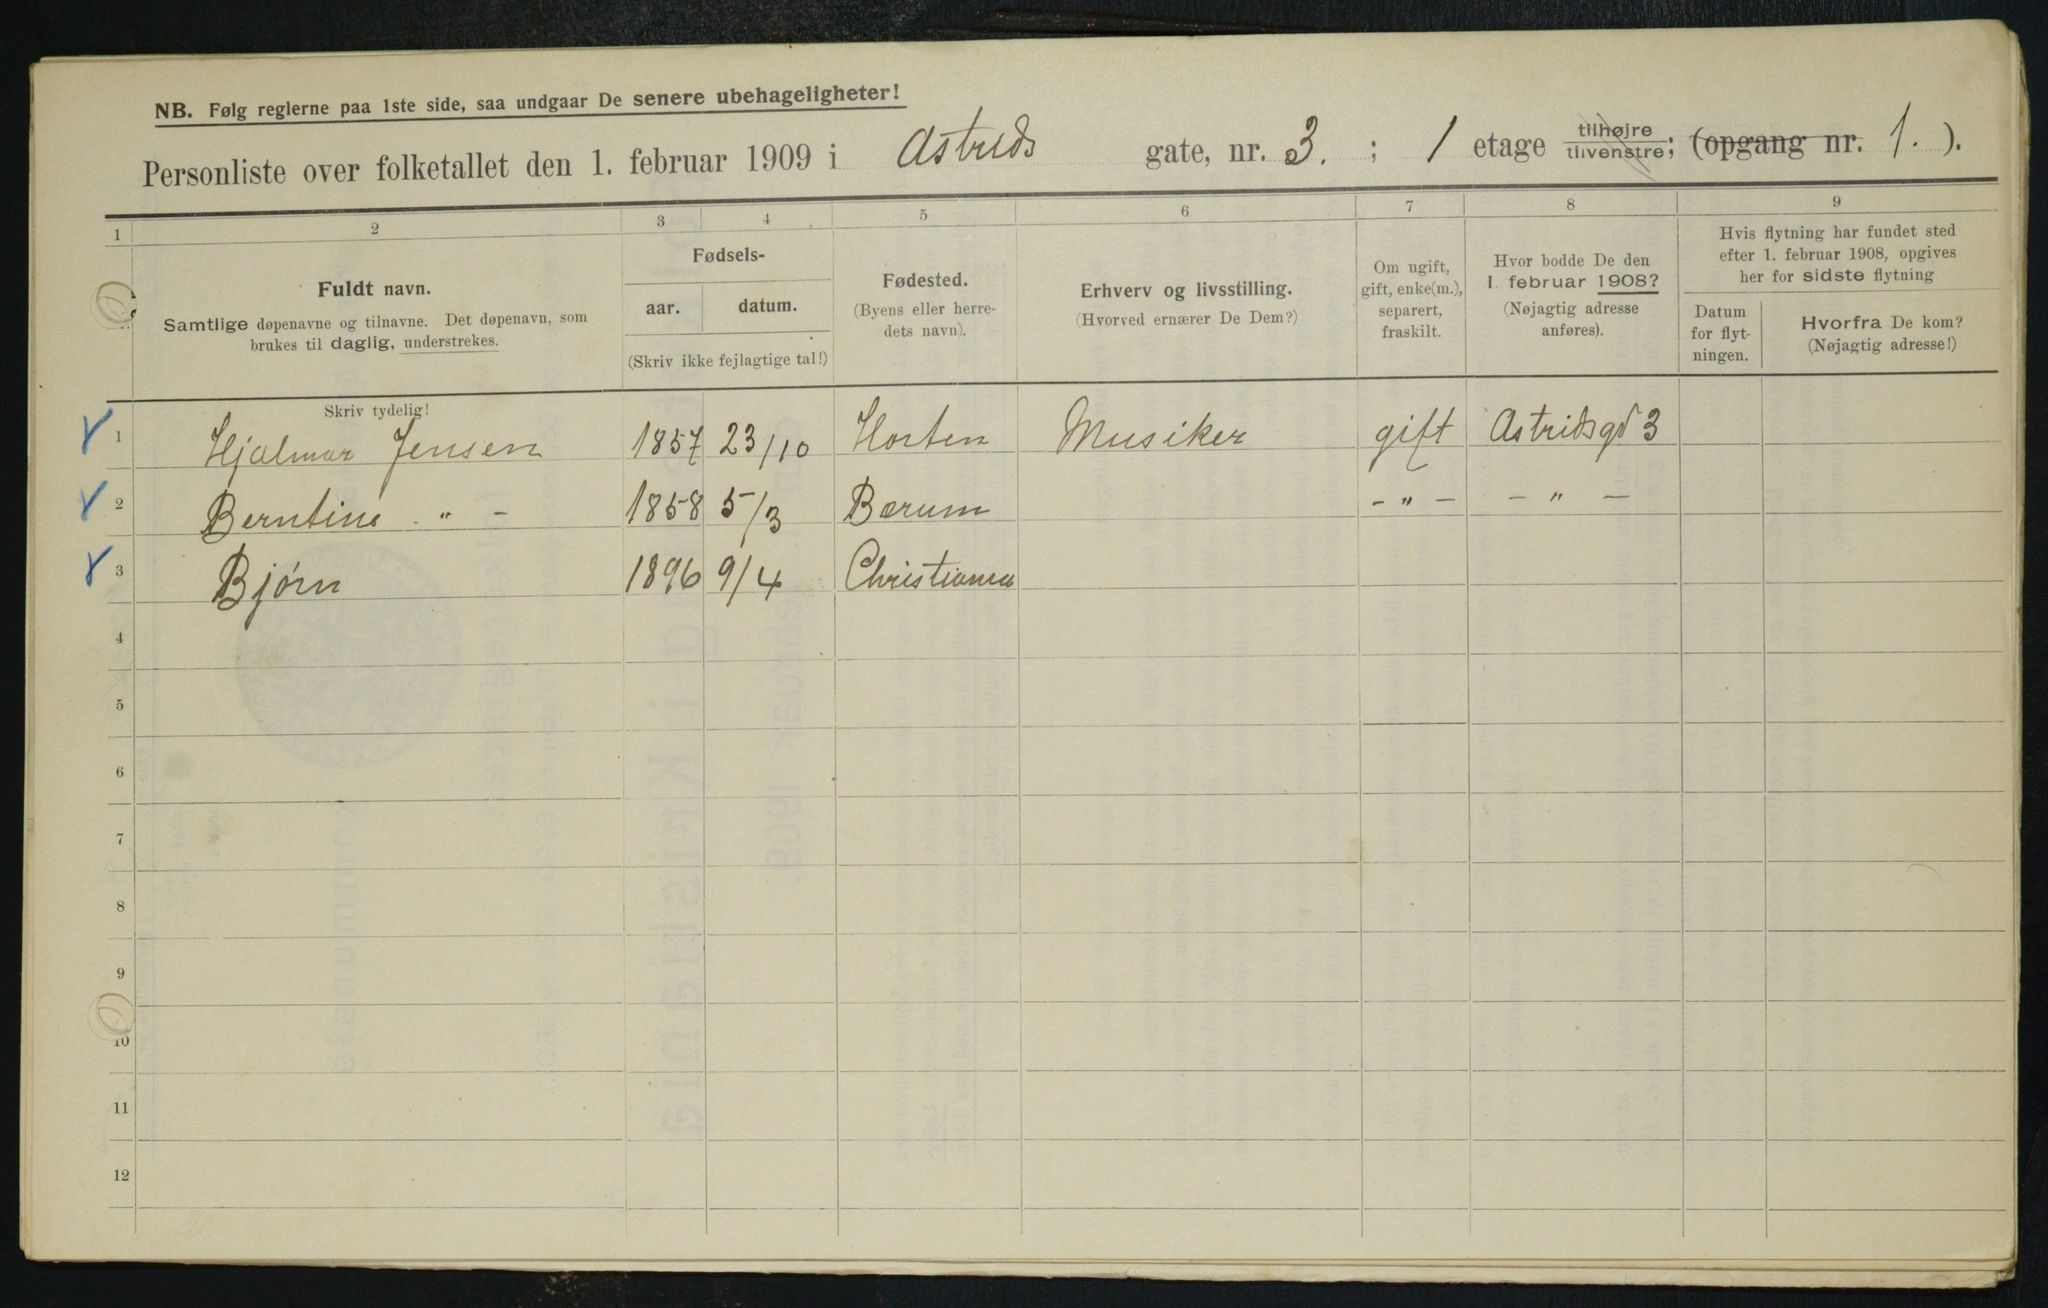 NB. Følg reglerne paa 1ste side, saa undgaar De senere ubehageligheter!
Personliste over folketallet den 1. februar 1909 i Astrids gate, nr. 3. ; 1 etage tilhøjre tilvenstre; (opgang nr. 1. ).
1 2 3 4 5 6 7 8 9
Fuldt navn.
Samtlige døpenavne og tilnavne. Det døpenavn, som
brukes til daglig, understrekes.
Fødsels-
aar. datum.
(Skriv ikke fejlagtige tal!)
Fødested.
(Byens eller herre-
dets navn).
Erhverv og livsstilling.
(Hvorved ernærer De Dem?)
Om ugift,
gift, enke(m.),
separert,
fraskilt.
Hvor bodde De den
1. februar 1908?
(Nøjagtig adresse
anføres).
Hvis flytning har fundet sted
efter 1. februar 1908, opgives
her for sidste flytning
Datum
for flyt-
ningen.
Hvorfra De kom?
(Nøjagtig adresse!)
Skriv tydelig!
1 Hjalmar Jensen 1857 23/10 Horten Musiker gift Astridsgd 3
2 Berntine - " - 1858 5/3 Bærum - " - - " -
3 Bjørn 1896 9/4 Christiania
4
5
6
7
8
9
10
11
12